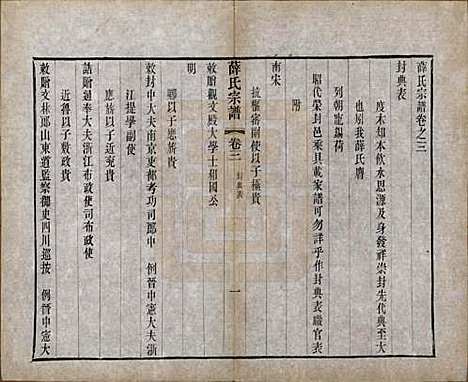 薛氏宗譜卷之三
封典表
度木知本飲水思源及身發祥崇封先代典至大
也別我薛氏膺
列朝寵錫荷
昭代榮封邑乘具載家譜可勿詳乎作封典表職官表
附
南宋
抗 審副使以子極貴
敕贈觀文殿大學士和國公
薛氏宗譜
卷三
封典表
一
明
聰以子應貴
敕封中大夫南京吏部考功司郎中 例晉中憲大夫浙
江提學副使
應旂以子近兗貴
誥贈通奉大夫浙江布政使司布政使
近魯以子敷政貴
敕贈文林郎山東道監察御史四川巡按 例晉中憲大